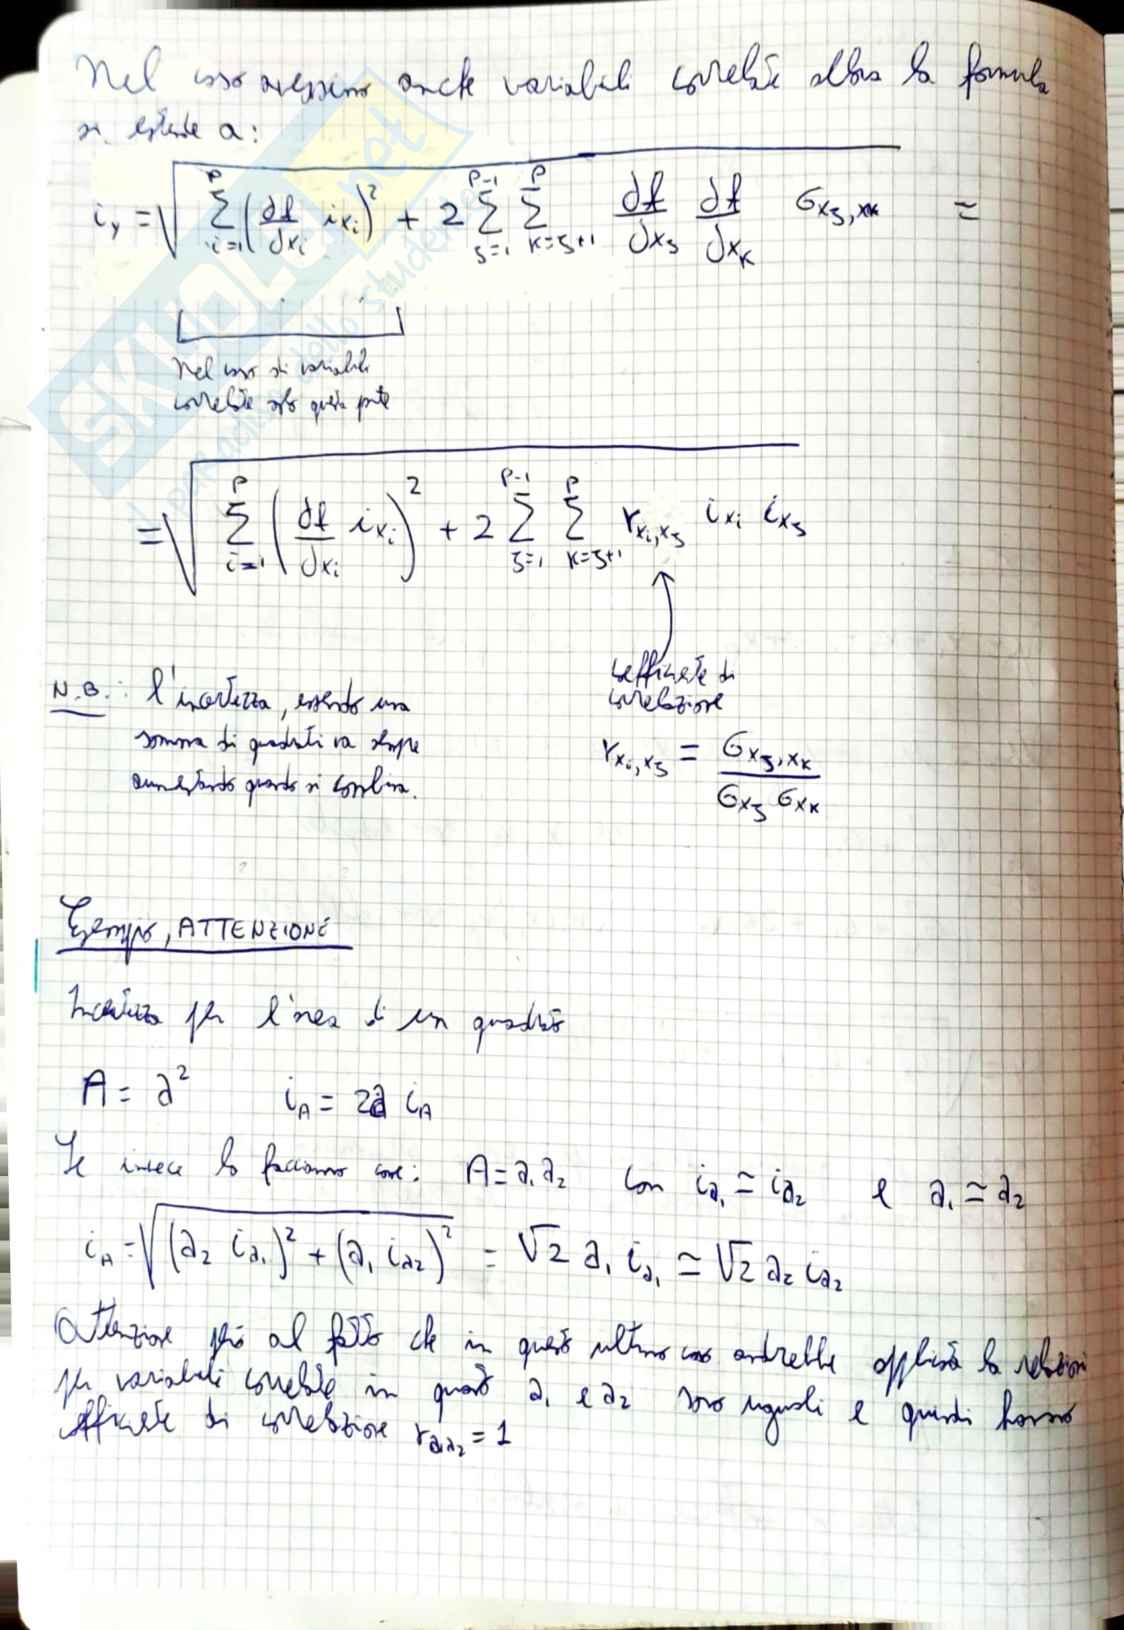 Nel caso avessimo anche variabili correlate allora la formula
si estende a:
i_y = √( Σ_{i=1}^{P} (∂f/∂x_i i_{x_i})² + 2 Σ_{j=1}^{P-1} Σ_{k=j+1}^{P} ∂f/∂x_j ∂f/∂x_k σ_{x_j,x_k} ) =
Nel caso di variabili
correlate solo questa parte
= √( Σ_{i=1}^{P} (∂f/∂x_i i_{x_i})² + 2 Σ_{j=1}^{P-1} Σ_{k=j+1}^{P} r_{x_i,x_j} i_{x_i} i_{x_j} )
coefficiente di
correlazione
r_{x_i,x_j} = σ_{x_j,x_k} / σ_{x_j} σ_{x_k}
N.B.: l'incertezza, essendo una
somma di quadrati va sempre
aumentando quando si combina.
Esempio, ATTENZIONE
Incertezza per l'area di un quadrato
A = a² i_A = 2a i_A
Se invece lo facciamo come: A = a₁a₂ con i_{a₁} ≃ i_{a₂} e a₁ ≃ a₂
i_A = √( (a₂ i_{a₁})² + (a₁ i_{a₂})² ) = √2 a₁ i_{a₁} ≃ √2 a₂ i_{a₂}
Attenzione però al fatto che in questo ultimo caso andrebbe applicata la relazione
per variabili correlate in quanto a₁ e a₂ sono uguali e quindi hanno
coefficiente di correlazione r_{a₁a₂} = 1
SKUOLA.net